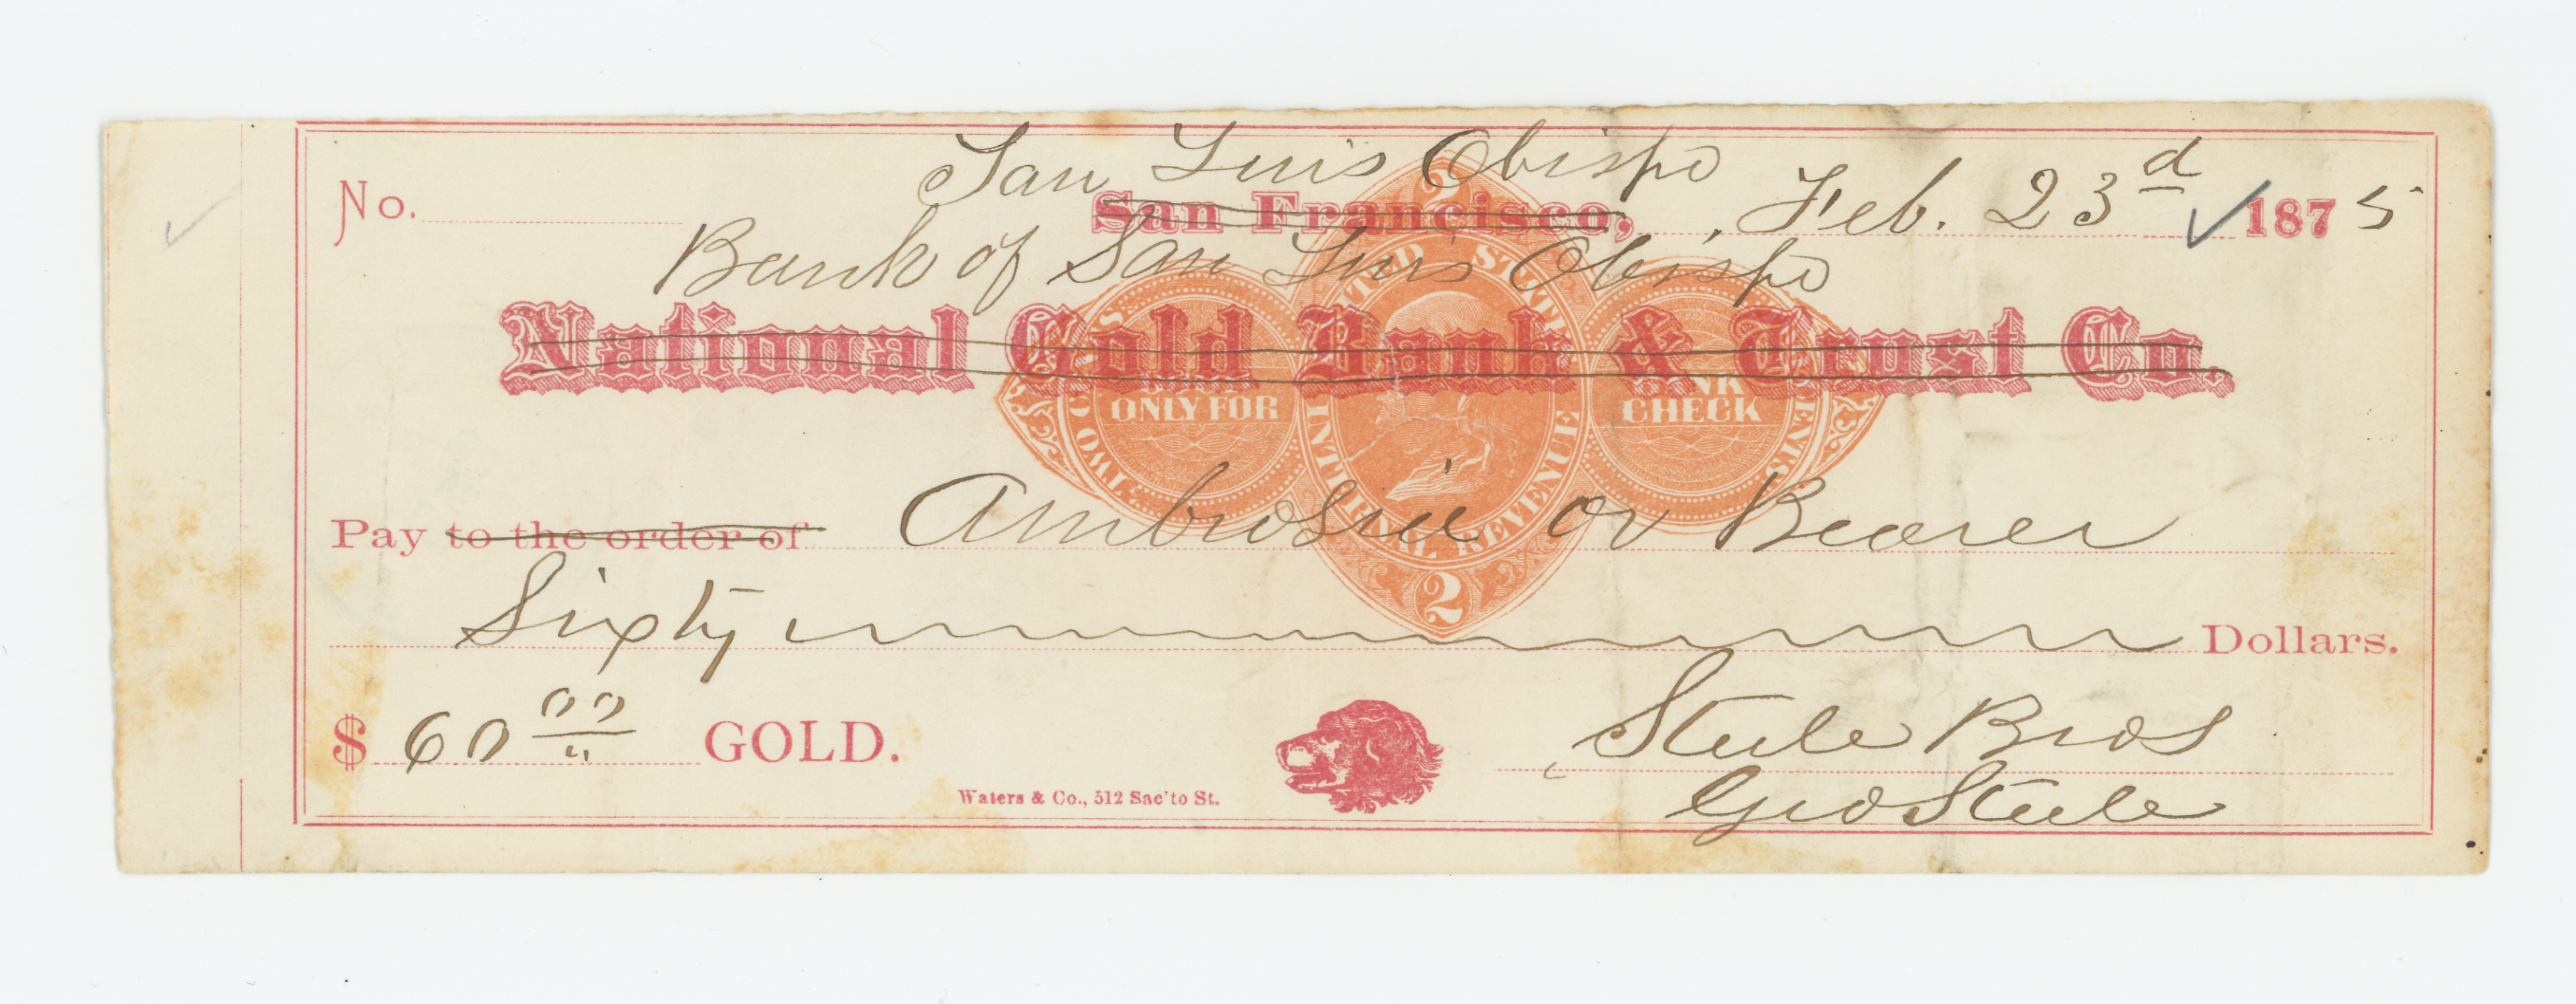 San Luis Obispo
No. San Francisco, Feb. 23d 1875
Bank of San Luis Obispo
National Gold Bank & Trust Co.
2
UNITED STATES INTERNAL REVENUE
ONLY FOR
BANK CHECK
TWO CENTS
Pay to the order of Ambrosia or Bearer
2
Sixty Dollars.
$ 60 00/" GOLD.
Steele Bros
Waters & Co., 512 Sac'to St.
Geo Steele